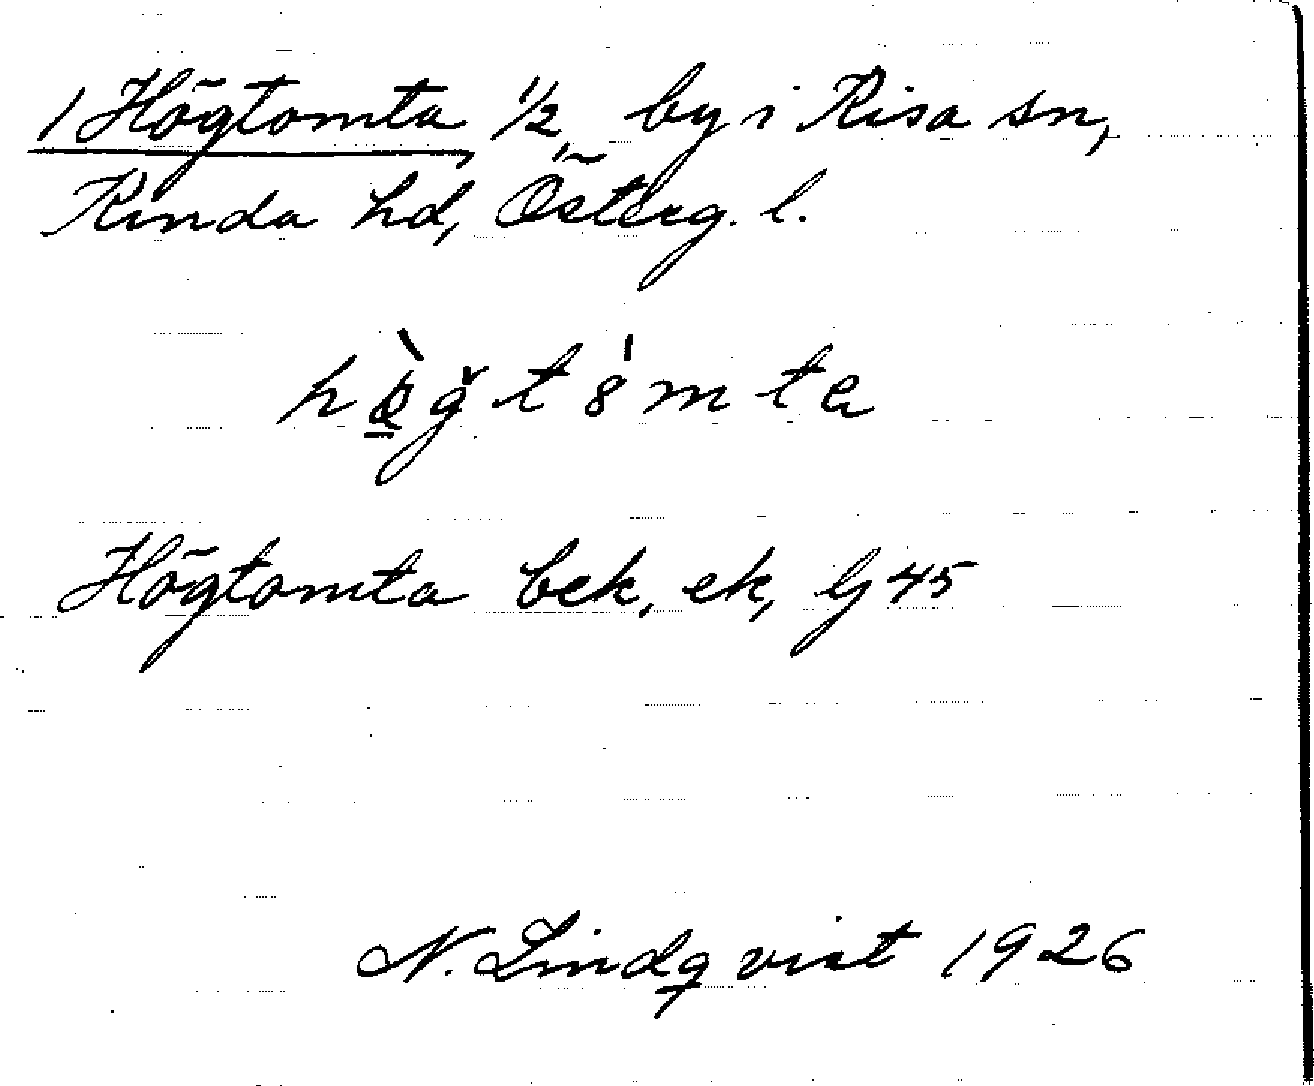 1 Högtomta, 1/2, by i Kisa sn,
Kinda hd, Österg. l.
Högtomta bek, ek,
N. Lindqvist 1926